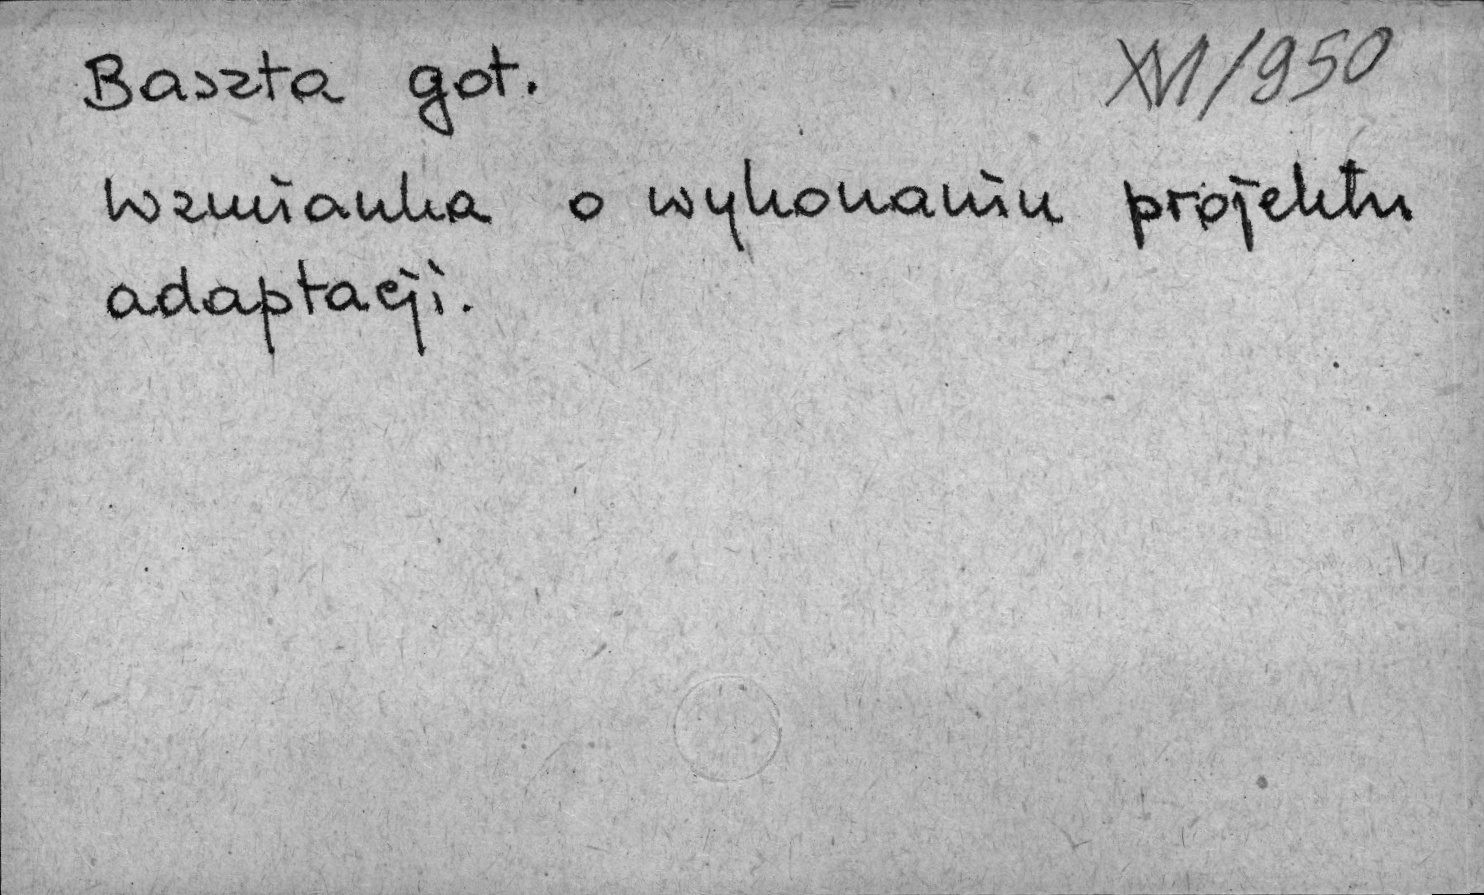 Baszta got. XVI/950
wzmianka o wykonaniu projektu
adaptacji.